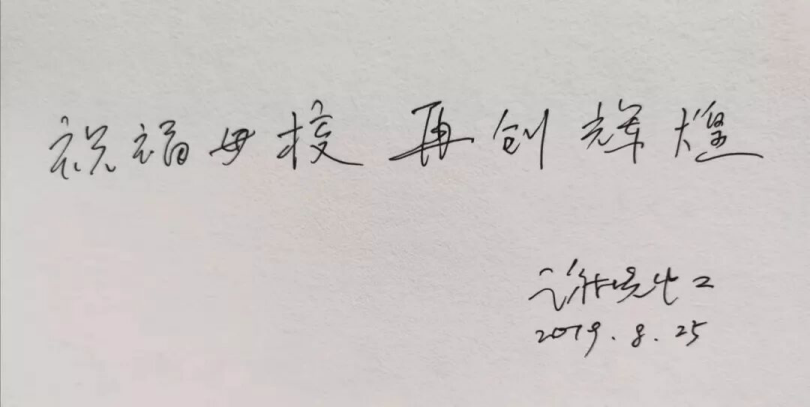 祝福母校 再创辉煌
2019.8.25